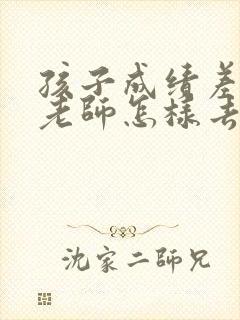 孩子成绩差
老师怎样去
沈家二師兄